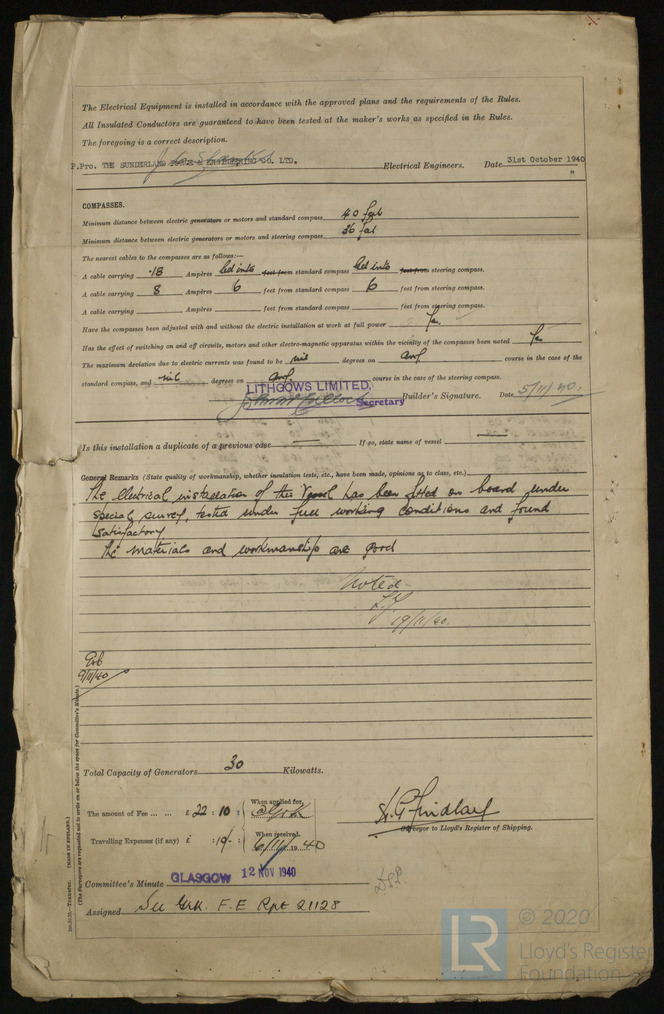 The Electrical Equipment is installed in accordance with the approved plans and the requirements of the Rules.
All Insulated Conductors are guaranteed to have been tested at the maker's works as specified in the Rules.
The foregoing is a correct description.
P.Pro. THE SUNDERLAND FORGE & ENGINEERING CO. LTD. Electrical Engineers. Date 31st October 1940
COMPASSES.
Minimum distance between electric generators or motors and standard compass 40 feet
Minimum distance between electric generators or motors and steering compass 36 feet
The nearest cables to the compasses are as follows:—
A cable carrying ·18 Ampères led into feet from standard compass led into feet from steering compass.
A cable carrying 8 Ampères 6 feet from standard compass 6 feet from steering compass.
A cable carrying Ampères feet from standard compass feet from steering compass.
Have the compasses been adjusted with and without the electric installation at work at full power Yes.
Has the effect of switching on and off circuits, motors and other electro-magnetic apparatus within the vicinity of the compasses been noted Yes
The maximum deviation due to electric currents was found to be nil degrees on any course in the case of the
standard compass, and nil degrees on any course in the case of the steering compass.
LITHGOWS LIMITED,
Secretary Builder's Signature. Date 5/11/40.
Is this installation a duplicate of a previous case — If so, state name of vessel —
General Remarks (State quality of workmanship, whether insulation tests, etc., have been made, opinions as to class, etc.)
The electrical installation of this Vessel has been fitted on board under
special survey, tested under full working conditions and found
satisfactory
The materials and workmanship are good
Noted
19/11/40.
9/11/40
Total Capacity of Generators 30 Kilowatts.
The amount of Fee ... ... £ 22 : 10 : When applied for,
Travelling Expenses (if any) £ : : When received,
6/11/1940
Surveyor to Lloyd's Register of Shipping.
Committee's Minute GLASGOW 12 NOV 1940
Assigned See Grk. F.E Rpt 21128
(The Surveyors are requested not to write on or below the space for Committee's Minute.)
(MADE IN ENGLAND.)
LR
© 2020
Lloyd's Register
Foundation